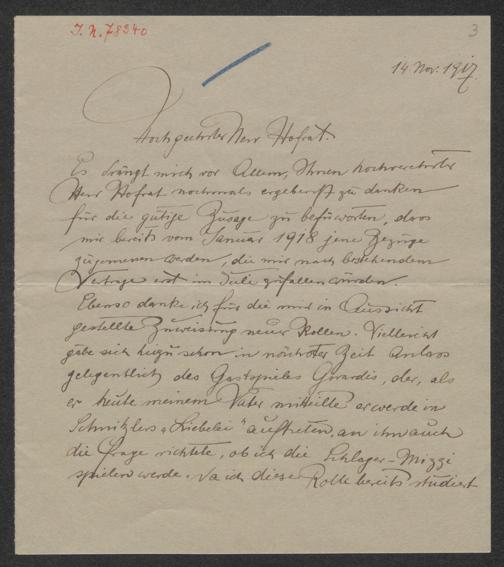 I. N. 78340
3
14. Nov. 1917.
Hochgeehrter Herr Hofrat.
Es drängt mich vor Allem, Ihnen hochverehrter
Herr Hofrat nochmals ergebenst zu danken
für die gütige Zusage zu befürworten, dass
mir bereits vom Januar 1918 jene Bezüge
zugemessen werden, die mir nach bestehendem
Vertrage erst im Juli zufallen würden.
Ebenso danke ich für die mir in Aussicht
gestellte Zuweisung neuer Rollen. Vielleicht
gäbe sich hiezu schon in nächster Zeit Anlass
gelegentlich des Gastspieles Girardis, der, als
er heute meinem Vater mitteilte er werde in
Schnitzlers „Liebelei" auftreten, an ihn auch
die Frage richtete, ob ich die Schlager-Mizzi
spielen werde. Da ich diese Rolle bereits studiert